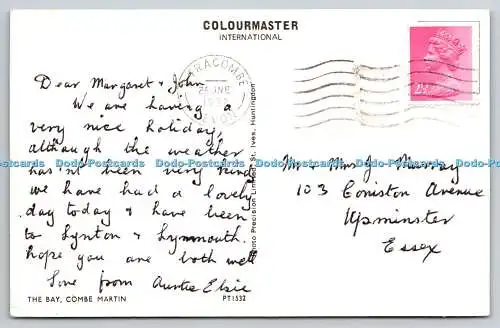 COLOURMASTER
INTERNATIONAL
Dear Margaret & John,
We are having a
very nice holiday,
although the weather
has'nt been very kind
we have had a lovely
day today & have been
to Lynton & Lynmouth.
hope you are both well
Love from Auntie Elsie
THE BAY, COMBE MARTIN
PT1532
Photo Precision Limited, St. Ives, Huntingdon
ILFRACOMBE
DEVON
Mr & Mrs J. Murray
103 Coniston Avenue
Upminster
Essex
Dodo-Postcards Dodo-Postcards Dodo-Postcards Dodo-Postcards Dodo-Postcards